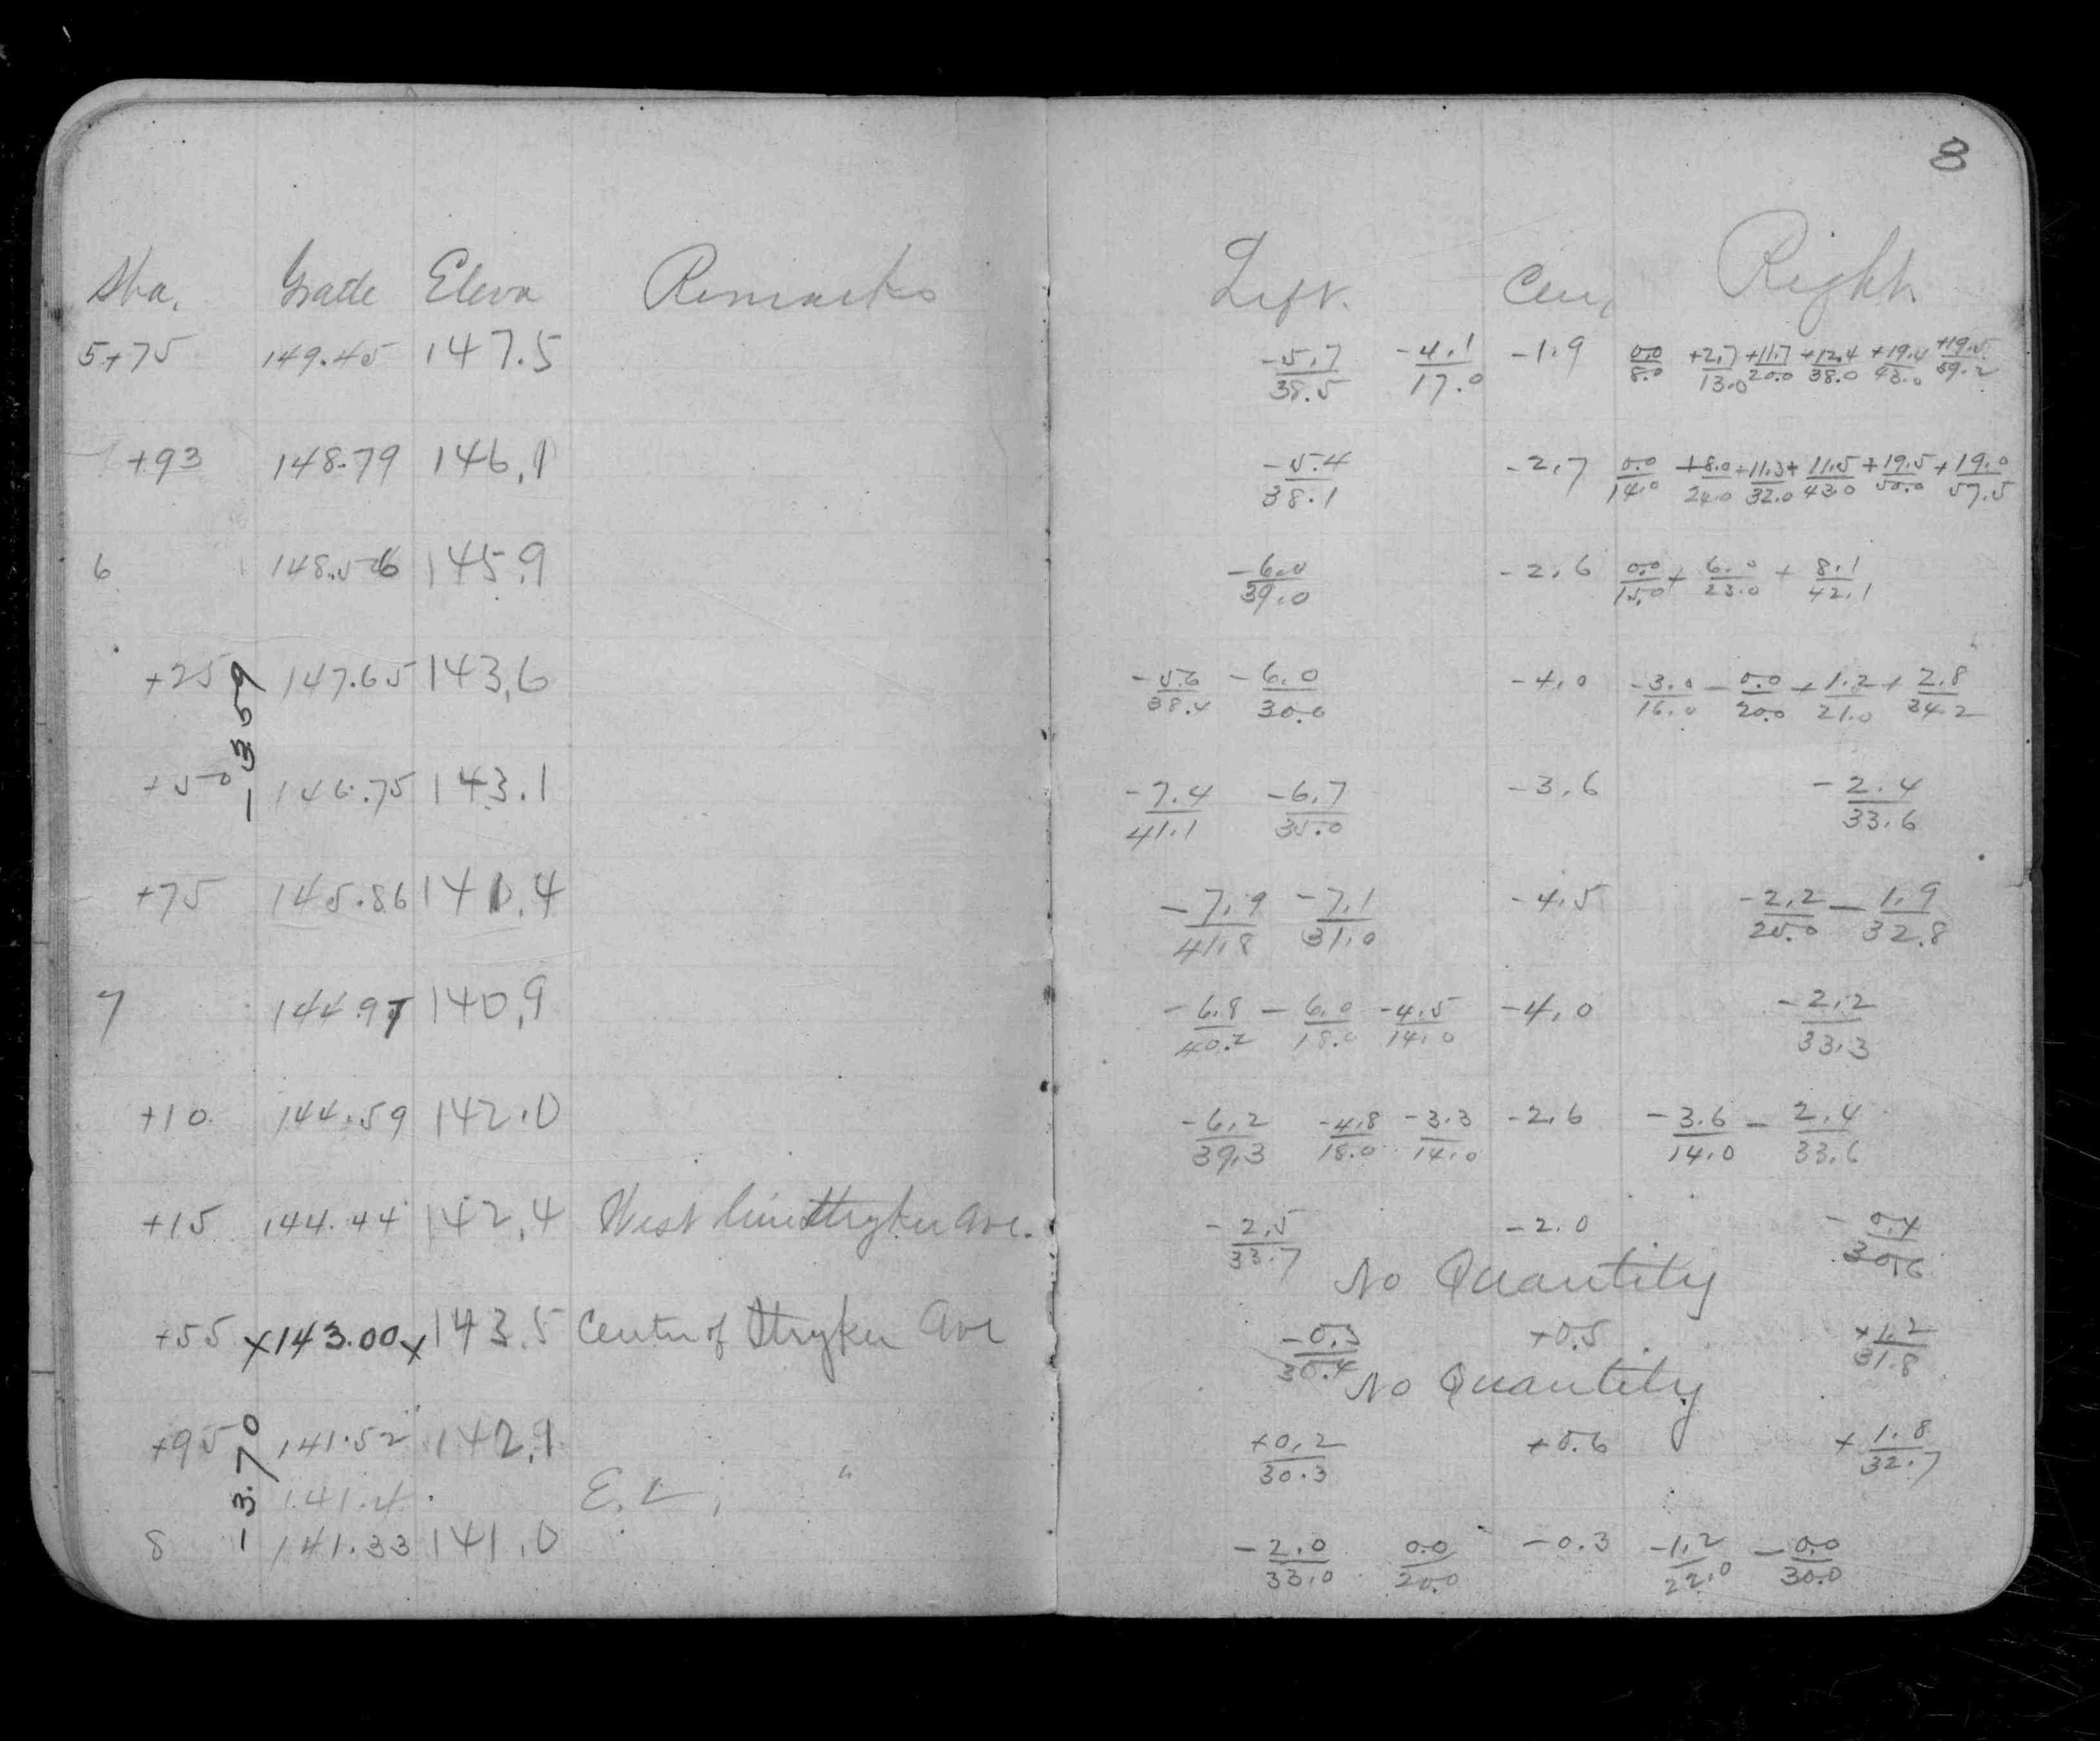 8
Sta. Grade Eleva Remarks Left. Cen. Right
5+75 149.45 147.5 -5.7/38.5 -4.1/17.0 -1.9 0.0/8.0 +2.7/13.0 +11.7/20.0 +12.4/38.0 +19.4/43.0 +19.5/59.2
+93 148.79 146.1 -5.4/38.1 -2.7 0.0/14.0 +8.0/24.0 +11.3/32.0 +11.5/43.0 +19.5/50.0 +19.0/57.5
6 148.56 145.9 -6.0/39.0 -2.6 0.0/15.0 +6.0/23.0 +8.1/42.1
+25 147.65 143.6 -5.6/38.4 -6.0/30.0 -4.0 -3.0/16.0 -0.0/20.0 +1.2/21.0 +2.8/34.2
-3.59
+50 146.75 143.1 -7.4/41.1 -6.7/35.0 -3.6 -2.4/33.6
+75 145.86 141.4 -7.9/41.8 -7.1/31.0 -4.5 -2.2/25.0 -1.9/32.8
7 144.97 140.9 -6.8/40.2 -6.0/18.0 -4.5/14.0 -4.0 -2.2/33.3
+10 144.59 142.0 -6.2/39.3 -4.8/18.0 -3.3/14.0 -2.6 -3.6/14.0 -2.4/33.6
+15 144.44 142.4 West line Stryker Ave. -2.5/33.7 -2.0 -0.4/30.6
No Quantity
+55 x143.00x 143.5 Center of Stryker Ave -0.3/30.4 +0.5 +1.2/31.8
No Quantity
+95 141.52 142.1 +0.2/30.3 +0.6 +1.8/32.7
-3.70
141.4 E. L. "
8 141.33 141.0 -2.0/33.0 0.0/20.0 -0.3 -1.2/22.0 -0.0/30.0